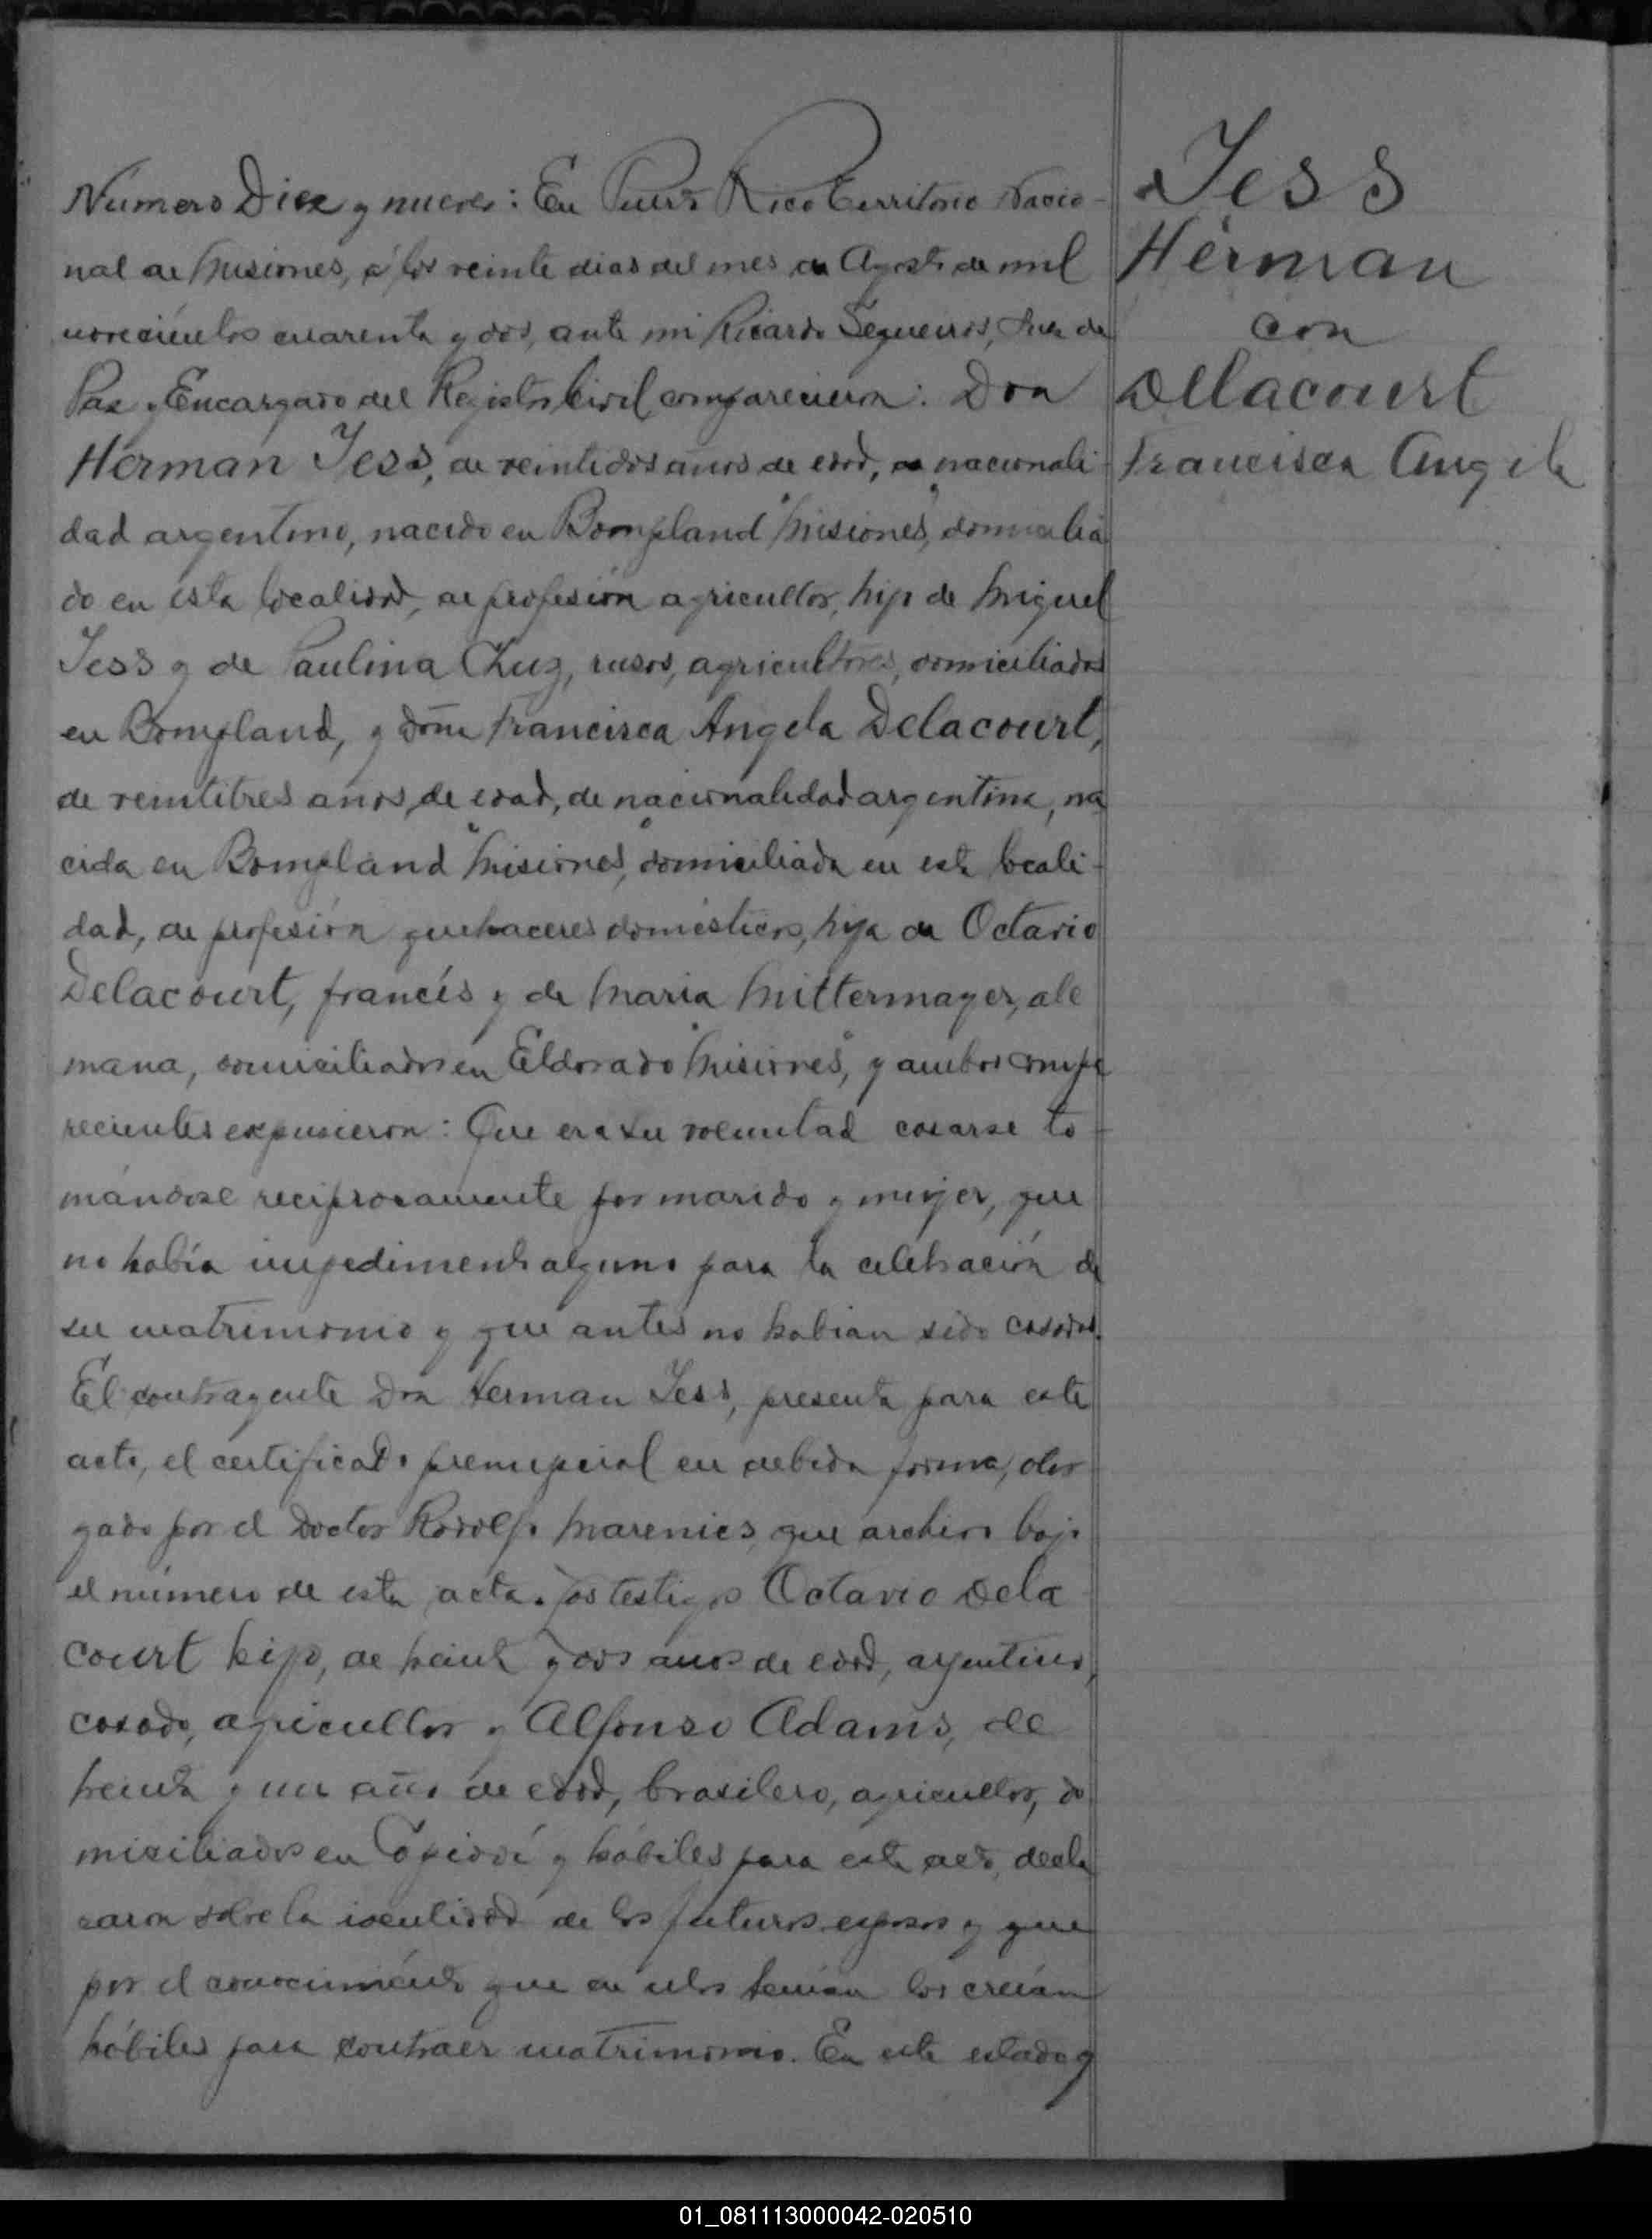 Número Diez y nueve: En Puerto Rico Territorio Nacio-
nal de Misiones, á los veinte dias del mes de Agosto de mil
novecientos cuarenta y dos, ante mi Ricardo Sequeiros, Juez de
Paz y Encargado del Registro Civil comparecieron: Don
Herman Jess, de veintidos años de edad, de nacionali-
dad argentino, nacido en Bompland "Misiones", domicilia
do en esta localidad, de profesión agricultor, hijo de Miguel
Jess y de Paulina, rusos, agricultores, domiciliados
en Bompland, y doña Francisca Angela Delacourt,
de veintitres años de edad, de nacionalidad argentina, na
cida en Bompland "Misiones", domiciliada en esta locali-
dad, de profesión quehaceres domésticos, hija de Octavio
Delacourt, francés y de Maria Mittermayer, ale
mana, domiciliados en Eldorado "Misiones", y ambos compa
recientes expusieron: Que era su voluntad casarse to-
mándose reciprocamente por marido y mujer, que
no había impedimento alguno para la celebración de
su matrimonio y que antes no habian sido casados.
El contrayente Don Herman Jess, presenta para este
acto, el certificado prenupcial en debida forma, otor
gado por el Doctor Rodolfo Marenics, que archivo bajo
el número de esta acta. Los testigos Octavio Dela
court hijo, de treinta y dos años de edad, argentino,
casado, agricultor y Alfonso Adams, de
treinta y un año de edad, brasilero, agricultor, do
miciliados en Capiovi y hábiles para este acto, decla
raron sobre la identidad de los futuros esposos y que
por el conocimiento que de ellos tenían los creían
hábiles para contraer matrimonio. En este estado y
Jess
Herman
con
Delacourt
Francisca Angela
01_081113000042-020510